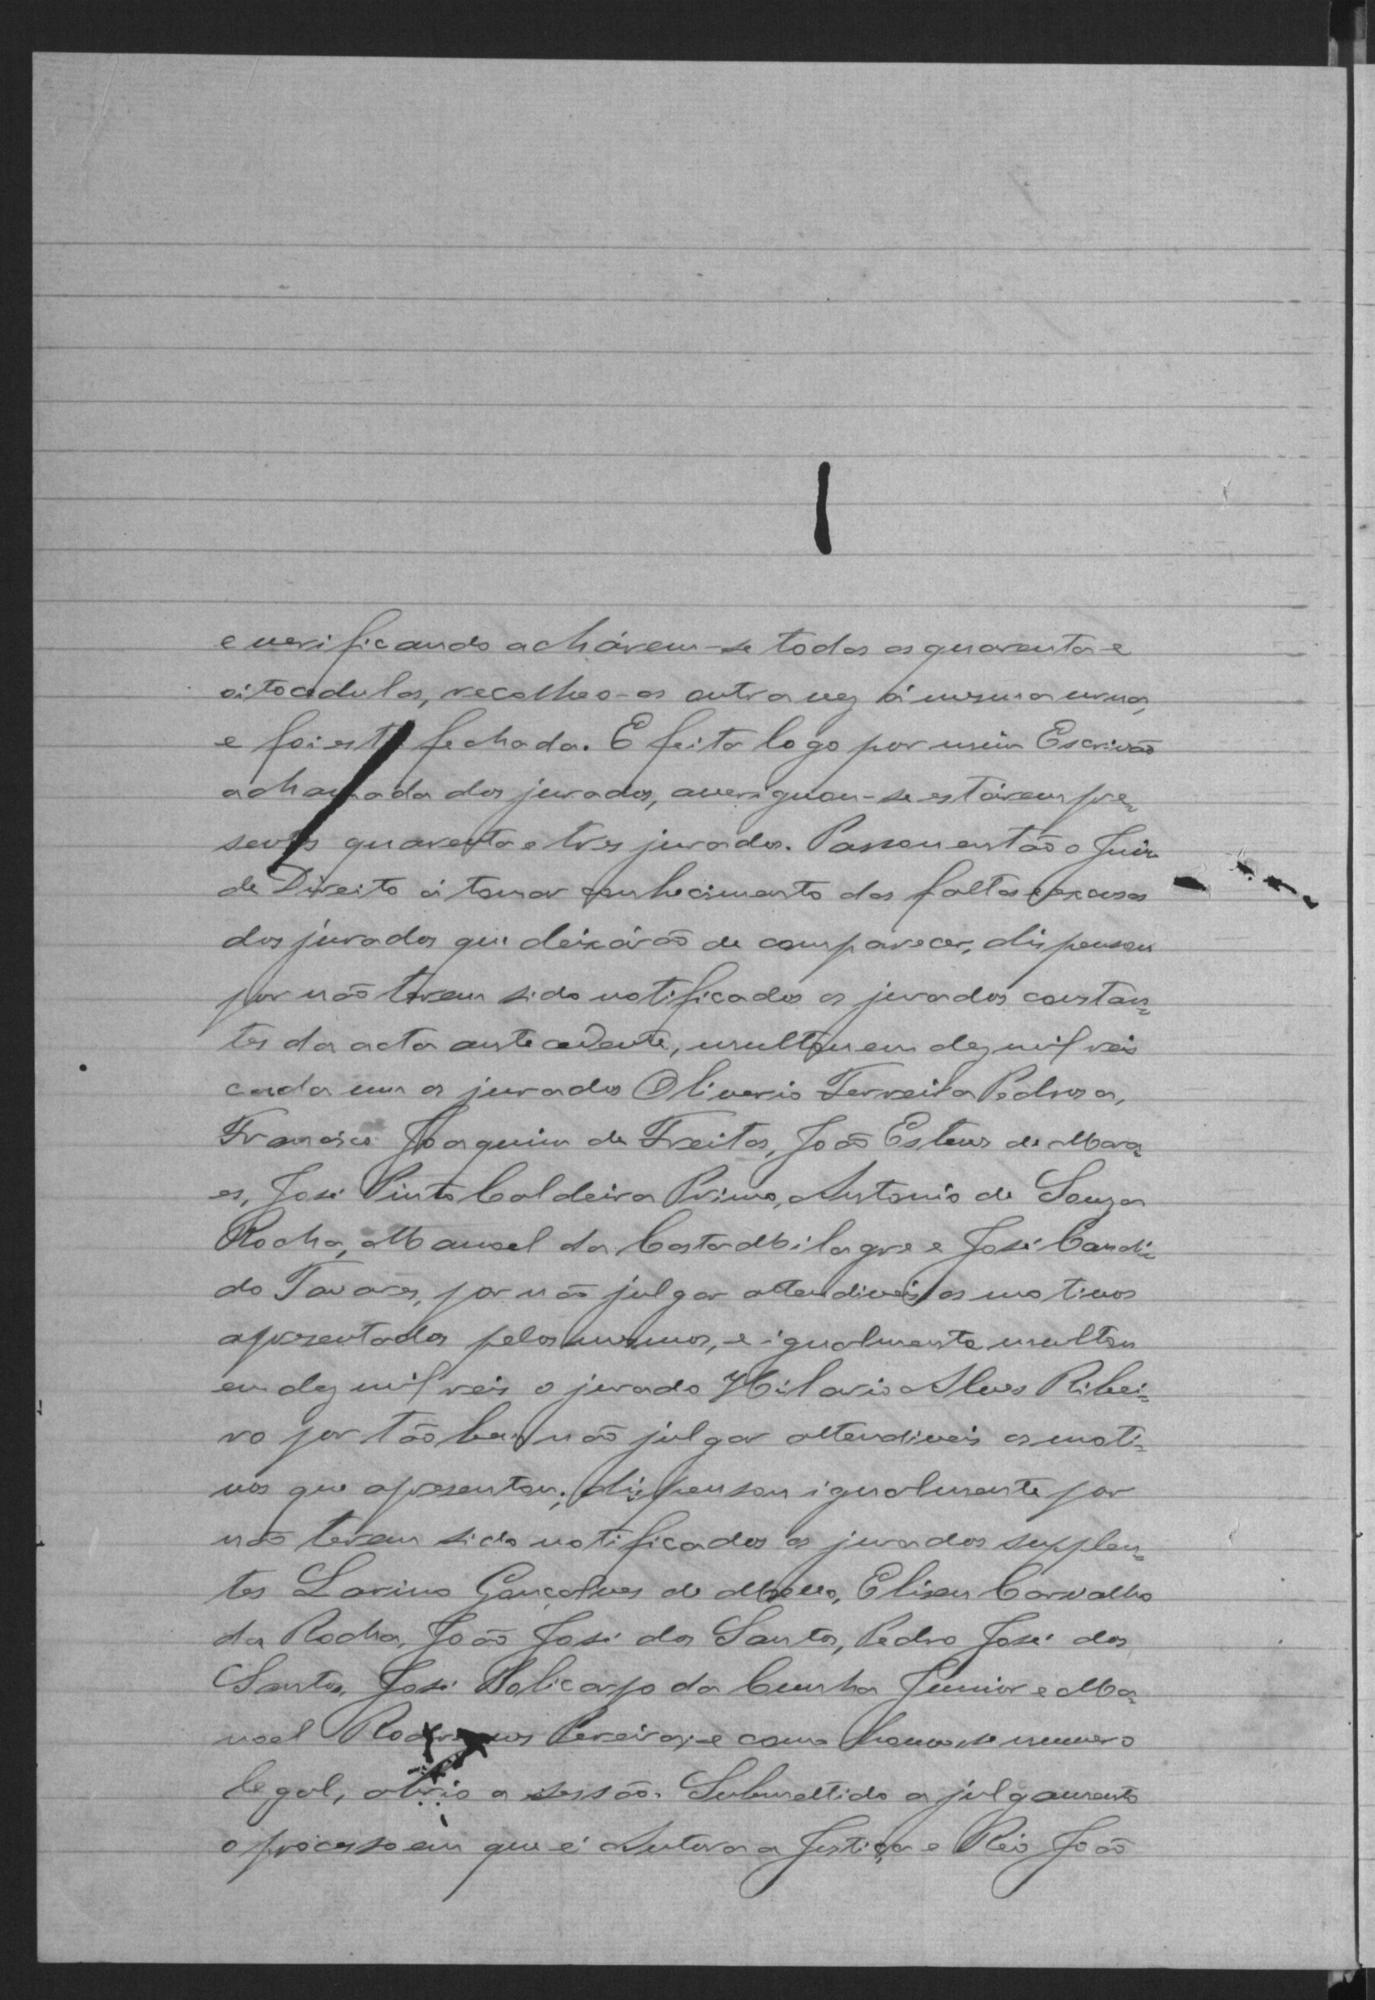 e verificando achárem-se todas as quarenta e
oito cedulas, recolheo-as outra vez á mesma urna,
e foi esta fechada. E feita logo por mim Escrivão
a chamada dos jurados, averiguou-se estárem pre=
sentes quarenta e tres jurados. Passou então o Juiz
de Direito á tomar conhecimento das faltas e excusas
dos jurados que deixárão de comparecer, dispensou
por não terem sido notificados os jurados constan=
tes da acta antecedente, multou em dez mil reis
cada um os jurados Oliverio Ferreira Pedrosa,
Francisco Joaquim de Freitas, João Esteves de Mora=
es, José Pinto Caldeira Primo, Antonio de Souza
Rocha, Manoel da Costa Milagre e José Candi=
do Tavares, por não julgar attendiveis os motivos
apresentados pelos mesmos, e igualmente multou
em dez mil reis o jurado Hilario Alves Ribei=
ro por tão bem não julgar attendiveis os moti=
vos que apresentou; dispensou igualmente por
não terem sido notificados os jurados supplen=
tes Larino Gonçalves de Mello, Eliseu Carvalho
da Rocha, João José dos Santos, Pedro José dos
Santos, José Policarpo da Cunha Junior e Ma=
noel Rodrigues Pereira; e como houvesse numero
legal, abrio a sessão. Submettido a julgamento
o processo em que é Autora a Justiça e Réo João